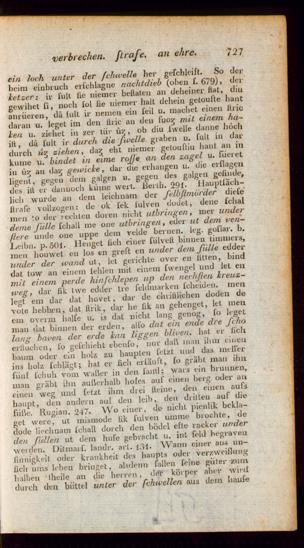 verbrechen. ſtrafe. an ehre. 727
ein loch unter der ſchwelle her geſchleift. So der
beim einbruch erſchlagne nachtdieb (oben ſ. 679), der
ketzer: ir ſult ſie niemer beſtaten an deheiner ſtat, diu
gewihet ſi, noch ſol ſie niemer halt dehein getoufte hant
anrüeren, dâ ſult ir nemen ein ſeil u. machet einen ſtric
daran u. leget im den ſtric an den fuoz mit einem ha-
ken u. ziehet in zer tür ûz, ob diu ſwelle danne hôch
iſt, dâ ſult ir durch die ſwelle graben u. ſult in dar
durch ûz ziehen, daz eht niemer getouftiu hant an in
kume u. bindet in eime roſſe an den zagel u. füeret
in ûz an daz gewicke, dar die erhangen u. die erſlagen
ligent, gegen dem galgen u. gegen des galgen geſinde,
des iſt er dannoch kûme wert. Berth. 291. Hauptſäch-
lich wurde an dem leichnam der ſelbſtmörder dieſe
ſtrafe vollzogen: de ok ſek ſulven dodet, dene ſchal
men to der rechten doren nicht utbringen, mer under
deme ſülle ſchall me one utbringen, eder ut dem ven-
ſtere unde one uppe dem velde bernen. leg. goſlar. b.
Leibn. p. 501. Henget ſich einer ſülveſt binnen timmers,
men houwet en los en greft en under dem ſülle edder
under der wand ut, let gerichte over en ſitten, bind
dat tow an einem ſehlen mit einem ſwengel und let en
mit einem perde hinſchlepen up den neehſten kreuz-
weg, dar ſik twe edder tre feldmarken ſcheiden. men
legt em dar dat hovet, dar de chriſtlichen doden de
vote hebben, dat ſtrik, dar he ſik an gehenget, let men
em overm halſe u. is dat nicht lang genog, ſo leget
man dat binnen der erden, alſo dat ein ende dre ſcho
lang baven der erde kan liggen bliven. hat er ſich
erſtochen, ſo geſchieht ebenſo, nur daß man ihm einen
baum oder ein holz zu haupten ſetzt und das meſſer
ins holz ſchlägt; hat er ſich erſäuft, ſo gräbt man ihn
fünf ſchuh vom waßer in den ſand; wars ein brunnen,
man gräbt ihn außerhalb hofes auf einen berg oder an
einen weg und ſetzt ihm drei ſteine, den einen aufs
haupt, den andern auf den leib, den dritten auf die
füße. Rugian. 247. Wo einer, de nicht pienlik bekla-
get were, ut miamode ſik ſulven umme brochte, de
dode liechnam ſchall durch den bödel efte racker under
den ſüllen ut dem huſe gebracht u. int feld begraven
werden. Ditmarſ. landr. art. 131. Wann einer aus un-
ſinnigkeit oder krankheit des haupts oder verzweiflung
ſich ums leben bringet, alsdenn fallen ſeine güter zum
halben theile an die herren, der körper aber wird
durch den büttel unter der ſchwellen aus dem hauſe